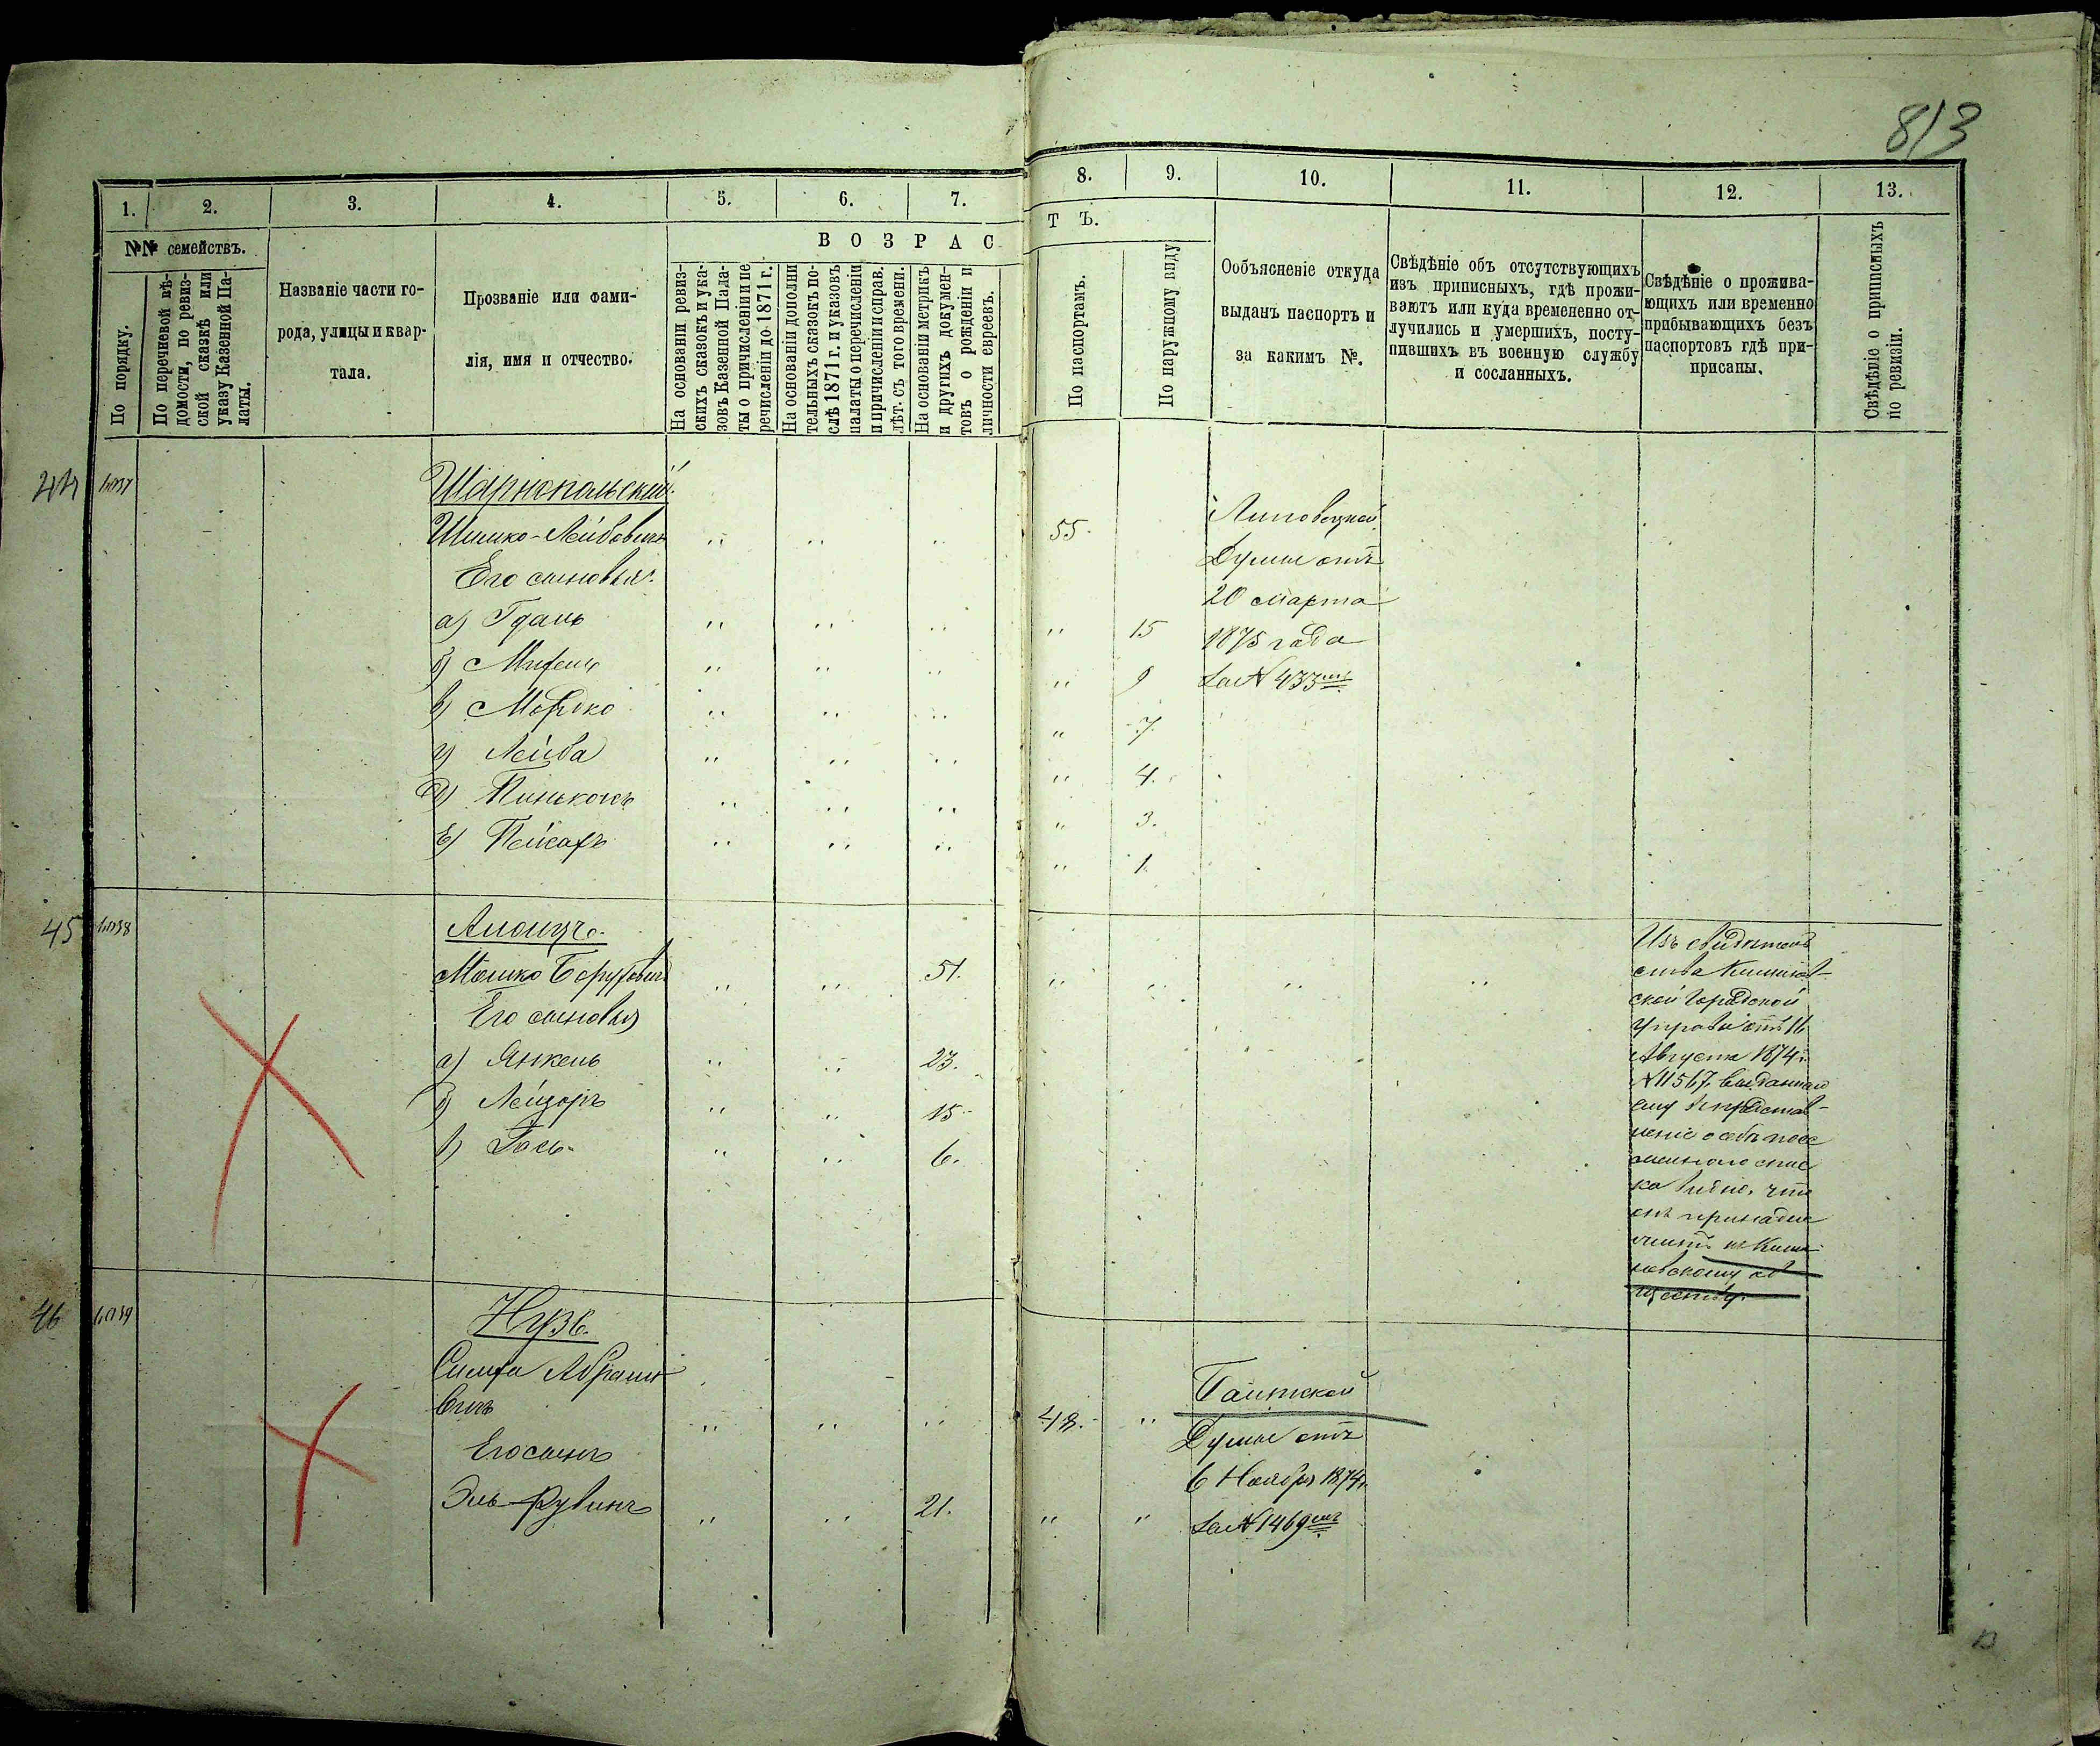 813
1.
2.
3.
4.
5.
6.
7.
8.
9.
10.
11.
12.
13.
№№ семействъ.
В О З Р А С
Т Ъ.
По порядку.
По перечневой вѣ-
домости, по ревиз-
ской сказкѣ или
указу Казенной Па-
латы.
Названіе части го-
рода, улицы и квар-
тала.
Прозваніе или фами-
лія, имя и отчество.
На основаніи ревиз-
скихъ сказокъ и ука-
зовъ Казенной Пала-
ты о причисленіи и пе
речисленіи до 1871 г.
На основаніи дополни
тельныхъ сказокъ по-
слѣ 1871 г. и указовъ
палаты о перечисленіи
и причисленіи и справ.
лѣт. съ того времени.
На основаніи метрикъ
и другихъ докумен-
товъ о рожденіи и
личности евреевъ.
По паспортамъ.
По наружному виду
Ообъясненіе откуда
выданъ паспортъ и
за какимъ №.
Свѣдѣніе объ отсутствующихъ
изъ приписныхъ, гдѣ прожи-
ваютъ или куда временно от-
лучились и умершихъ, посту-
пившихъ въ военную службу
и сосланныхъ.
Свѣдѣніе о прожива-
ющихъ или временно
прибывающихъ безъ
паспортовъ гдѣ при-
писаны.
Свѣдѣніе о приписныхъ
по ревизіи.
44
Шарнопольскій
Шимко-Лейбовичъ „ „ „ 55
Его сыновья:
а) Гдань „ „ „ „ 15
б) Михель „ „ „ „ 9
в) Мордко „ „ „ „ 7.
г) Лейба „ „ „ „ 4.
д) Пинькасъ „ „ „ „ 3.
е) Пейсахъ „ „ „ „ 1.
Липовецкой
Думы отъ
20 марта
1875 года
за № 433мъ
45
Мошко Боруховичъ „ „ 51. „ „ „ „
Его сыновья
а) Янкель „ „ 23.
б) Лейзоръ „ „ 15
в) Іось „ „ 6.
Изъ свидѣтель
ства Кишинев-
ской городской
управы отъ 16
Августа 1874 г.
№ 11567. выданнаго
ему
видно, что
онъ принадле
житъ къ Киши
невскому об
ществу.
46
Нузъ.
Симха Абрамо
вичъ „ „ „ 48. „
Его сынъ
Эль-Рувинъ „ „ 21. „ „
Думы отъ
6 Ноября 1874 г.
за № 1469мъ